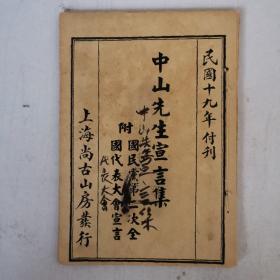 民國十九年付刊
中山先生宣言集
附
國民黨第一次全
國代表大會宣言
上海尚古山房發行
代表大會